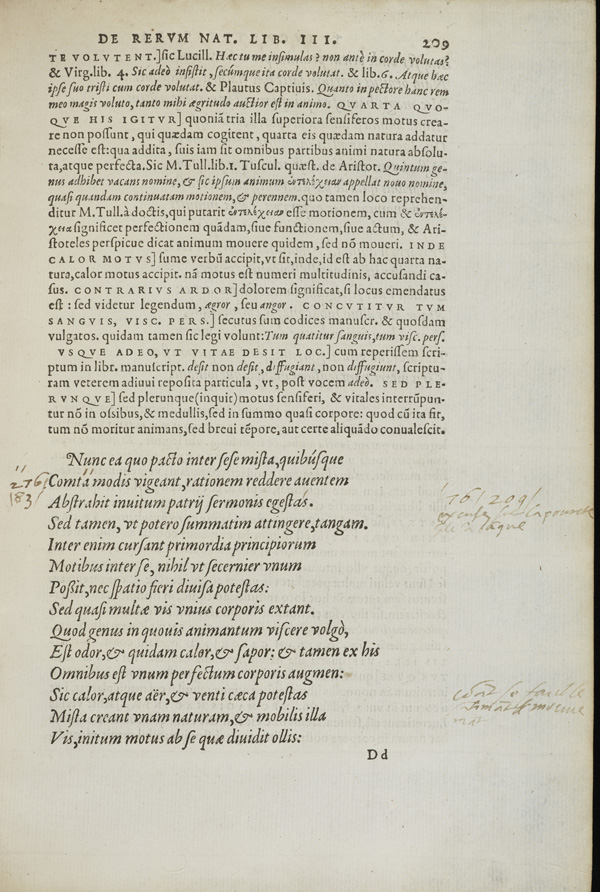 DE RERVM NAT. LIB. III. 209
TE VOLVTENT.] sic Lucill. Hæc tu me insimulas? non antè in corde volutas?
& Virg. lib. 4. Sic adeò insistit, secúmque ita corde volutat. & lib. 6. Atque hæc
ipse suo tristi cum corde volutat. & Plautus Captiuis. Quanto in pectore hanc rem
meo magis voluto, tanto mihi ægritudo auctior est in animo. QVARTA QVO-
QVE HIS IGITVR] quoniã tria illa superiora sensiferos motus crea-
re non possunt, qui quædam cogitent, quarta eis quædam natura addatur
necesse est: qua addita, suis iam sit omnibus partibus animi natura absolu-
ta, atque perfecta. Sic M. Tull. lib. 1. Tuscul. quæst. de Aristot. Quintum ge-
nus adhibet vacans nomine, & sic ipsum animum ἐντελέχειαν appellat nouo nomine,
quasi quandam continuatam motionem, & perennem. quo tamen loco reprehen-
ditur M. Tull. à doctis, qui putarit ἐντελέχειαν esse motionem, cum & ἐντελέ-
χεια significet perfectionem quãdam, siue functionem, siue actum, & Ari-
stoteles perspicue dicat animum mouere quidem, sed nõ moueri. INDE
CALOR MOTVS] sume verbũ accipit, vt sit, inde, id est ab hac quarta na-
tura, calor motus accipit. nã motus est numeri multitudinis, accusandi ca-
sus. CONTRARIVS ARDOR] dolorem significat, si locus emendatus
est: sed videtur legendum, ægror, seu angor. CONCVTITVR TVM
SANGVIS, VISC. PERS.] secutus sum codices manuscr. & quosdam
vulgatos. quidam tamen sic legi volunt: Tum quatitur sanguis, tum visc. pers.
VSQVE ADEO, VT VITAE DESIT LOC.] cum reperissem scri-
ptum in libr. manuscript. desit non desit, diffugiant, non diffugiunt, scriptu-
ram veterem adiuui reposita particula, vt, post vocem adeò. SED PLE-
RVNQVE] sed plerunque (inquit) motus sensiferi, & vitales interrũpun-
tur nõ in ossibus, & medullis, sed in summo quasi corpore: quod cũ ita fit,
tum nõ moritur animans, sed breui tẽpore, aut certe aliquãdo conualescit.
Nunc ea quo pacto inter sese mista, quibúsque
276 Comta modis vigeant, rationem reddere auentem
183 Abstrahit inuitum patrij sermonis egestas.
Sed tamen, vt potero summatim attingere, tangam.
Inter enim cursant primordia principiorum
Motibus inter se, nihil vt secernier vnum
Possit, nec spatio fieri diuisa potestas:
Sed quasi multæ vis vnius corporis extant.
Quod genus in quouis animantum viscere volgò,
Est odor, & quidam calor, & sapor: & tamen ex his
Omnibus est vnum perfectum corporis augmen:
Sic calor, atque aër, & venti cæca potestas
Mista creant vnam naturam, & mobilis illa
Vis, initum motus ab se quæ diuidit ollis:
Dd